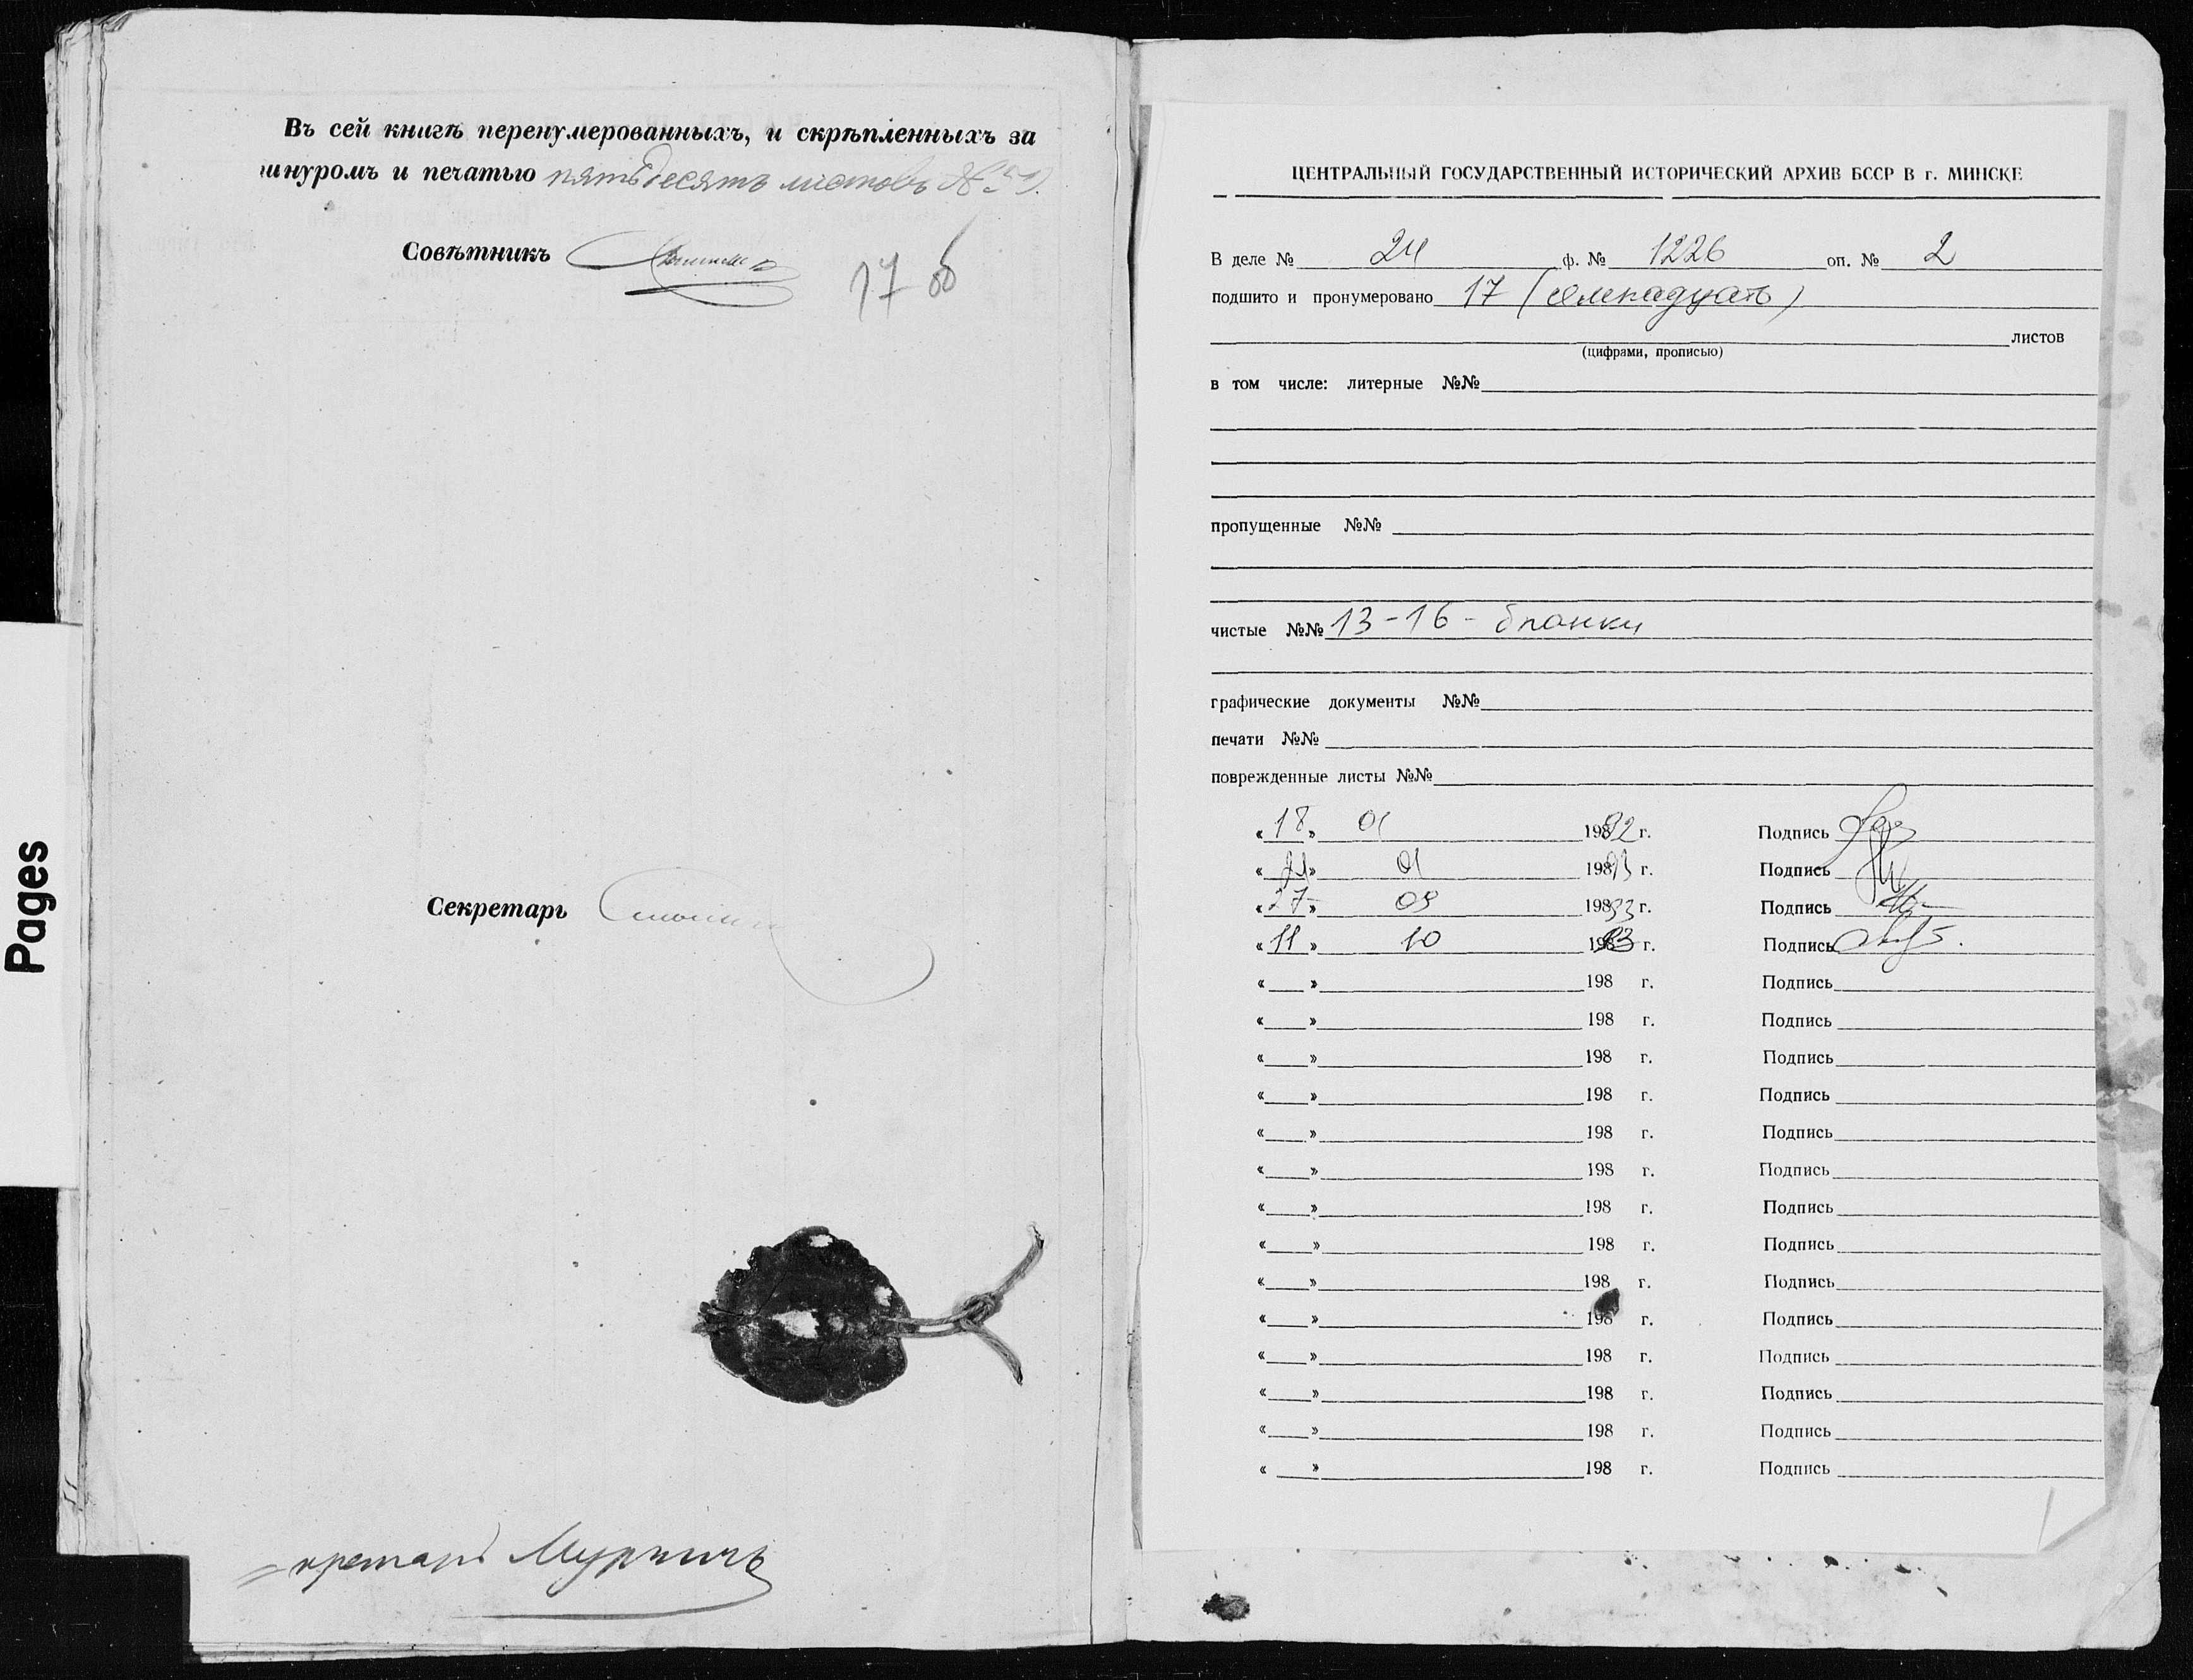 Въ сей книгѣ перенумерованныхъ, и скрѣпленныхъ за
шнуромъ и печатью пятьдесятъ листовъ
Совѣтникъ
17 об
Секретарь
кретарь
Pages
ЦЕНТРАЛЬНЫЙ ГОСУДАРСТВЕННЫЙ ИСТОРИЧЕСКИЙ АРХИВ БССР В г. МИНСКЕ
В деле № 24 ф. № 1226 оп. № 2
подшито и пронумеровано 17 (семнадцать)
листов
(цифрами, прописью)
в том числе: литерные №№
пропущенные №№
чистые №№ 13-16 - бланки
графические документы №№
печати №№
поврежденные листы №№
« 18 » 01 19892 г. Подпись
« 21 » 01 19893 г. Подпись
« 27 » 09 19893 г. Подпись
« 11 » 10 19893 г. Подпись
« » 198 г. Подпись
« » 198 г. Подпись
« » 198 г. Подпись
« » 198 г. Подпись
« » 198 г. Подпись
« » 198 г. Подпись
« » 198 г. Подпись
« » 198 г. Подпись
« » 198 г. Подпись
« » 198 г. Подпись
« » 198 г. Подпись
« » 198 г. Подпись
« » 198 г. Подпись
« » 198 г. Подпись